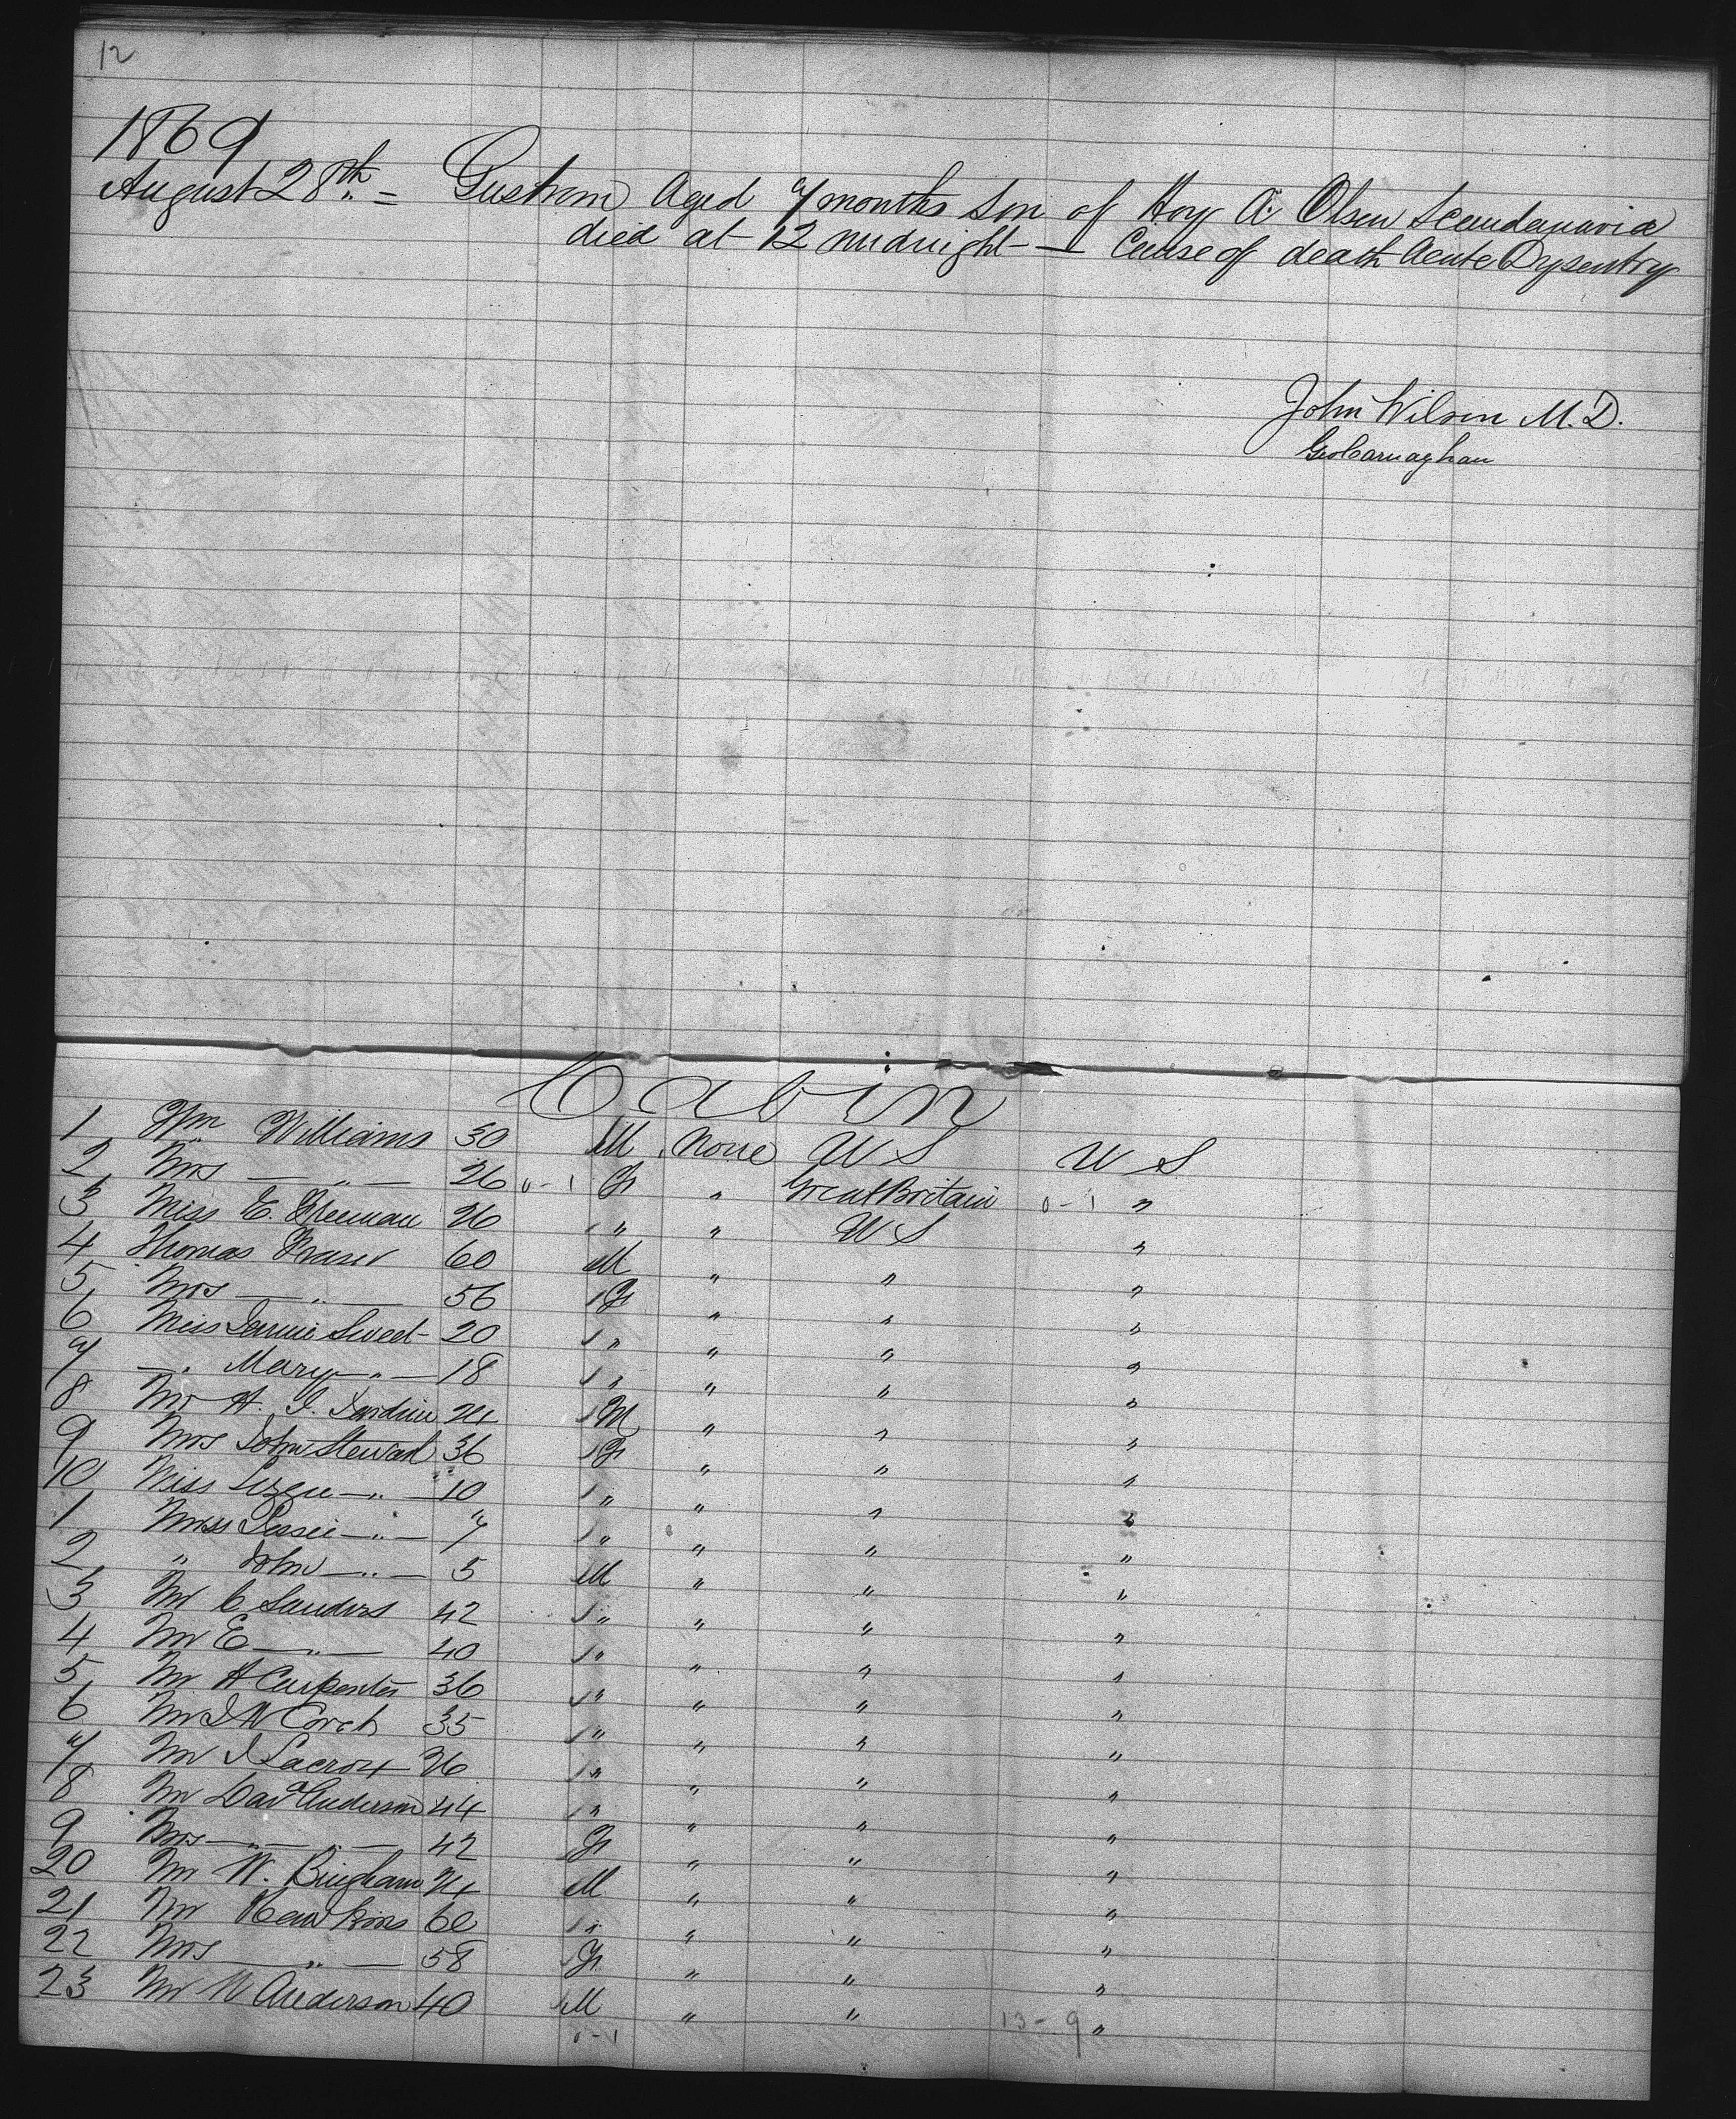 12
1869
August 28th = Gustrom Aged 7 months Son of Hoy A. Olsen Scandanavia
died at 12 midnight — Cause of death Acute Dysentry
John Wilson M.D.
Geo Carnaghan
Cabin
1 Wm Williams 30 M None U S U S
2 Mrs — " — 26 0-1 F " Great Britain 0-1 "
3 Miss E. Freeman 26 " " U S "
4 Thomas Fraser 60 M " " "
5 Mrs — " — 56 F " " "
6 Miss Jennie Sweet 20 " " " "
7 — " Mary — " — 18 " " " "
8 Mr H. J. Jardine 24 M " " "
9 Mrs John Steward 36 F " " "
10 Miss Lizzie — " — 10 " " " "
1 Miss Jessie — " — 7 " " " "
2 " John — " — 5 M " " "
3 Mr C Sanders 42 " " " "
4 Mr E — " — 40 " " " "
5 Mr A Carpenter 36 " " " "
6 Mr J W 35 " " " "
7 Mr J Lacroix 26 " " " "
8 Mr Davd Anderson 44 " " " "
9 Mrs — " — " — 42 F " " "
20 Mr W. Bingham 24 M " " "
21 Mr Hawkins 60 " " " "
22 Mrs — " — 58 F " " "
23 Mr W Anderson 40 M " " "
0-1 13-9